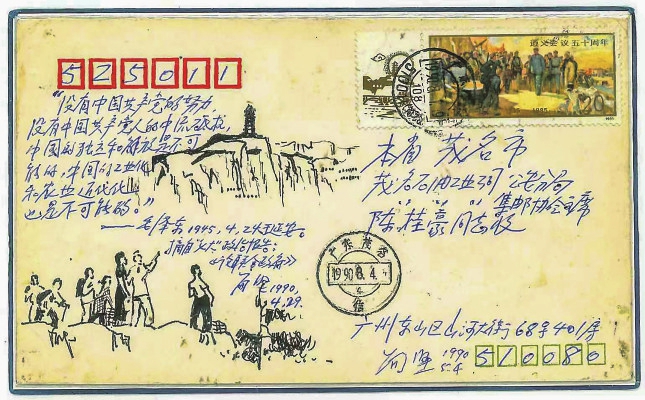 525011
遵义会议五十周年
"没有中国共产党的努力,
没有中国共产党人的中流砥柱,
中国的独立和解放是不可
能的,中国的工业化
和农业近代化
也是不可能的。"
——毛泽东1945.4.24延安。
摘自"七大"政治报告:
1990,
4.29.
本省茂名市
茂名石油工业公司
集邮协会主席
陈桂豪同志收
广东茂名
1990.8.4
广州东山区山河大街68号401房
1990
5.4
510080